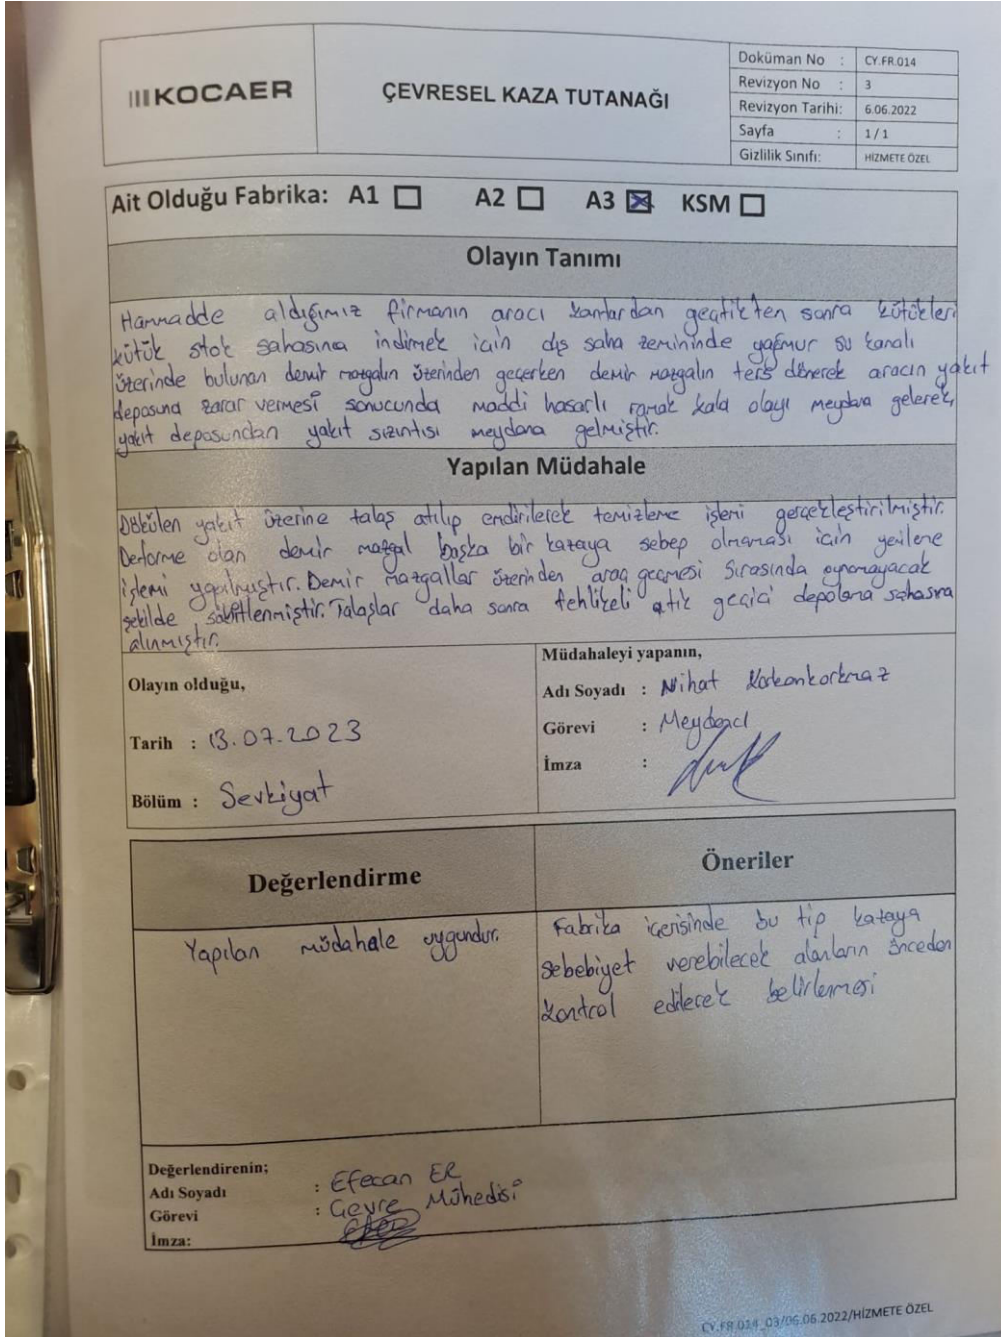 KOCAER
ÇEVRESEL KAZA TUTANAĞI
Doküman No : CY.FR.014
Revizyon No : 3
Revizyon Tarihi: 6.06.2022
Sayfa : 1/1
Gizlilik Sınıfı: HİZMETE ÖZEL
Ait Olduğu Fabrika: A1 ☐ A2 ☐ A3 ☒ KSM ☐
Olayın Tanımı
Hammadde aldığımız firmanın aracı kantardan geçtikten sonra kütükleri
kütük stok sahasına indirmek için dış saha zemininde yağmur su kanalı
üzerinde bulunan demir mazgalın üzerinden geçerken demir mazgalın ters dönerek aracın yakıt
deposuna zarar vermesi sonucunda maddi hasarlı ramak kala olayı meydana gelerek,
yakıt deposundan yakıt sızıntısı meydana gelmiştir.
Yapılan Müdahale
Dökülen yakıt üzerine talaş atılıp emdirilerek temizleme işlemi gerçekleştirilmiştir.
Deforme olan demir mazgal başka bir kazaya sebep olmaması için yenileme
işlemi yapılmıştır. Demir mazgallar üzerinden araç geçmesi sırasında oynamayacak
şekilde sabitlenmiştir. Talaşlar daha sonra tehlikeli atık geçici depolama sahasına
alınmıştır.
Olayın olduğu,
Tarih : 13.07.2023
Bölüm : Sevkiyat
Müdahaleyi yapanın,
Adı Soyadı : Nihat Korkankorkmaz
Görevi : Meydancı
İmza :
Değerlendirme
Öneriler
Yapılan müdahale uygundur.
Fabrika içerisinde bu tip kazaya
sebebiyet verebilecek alanların önceden
kontrol edilerek belirlenmesi
Değerlendirenin;
Adı Soyadı : Efecan ER
Görevi : Çevre Mühedisi
İmza:
CY.FR.014_03/06.06.2022/HİZMETE ÖZEL